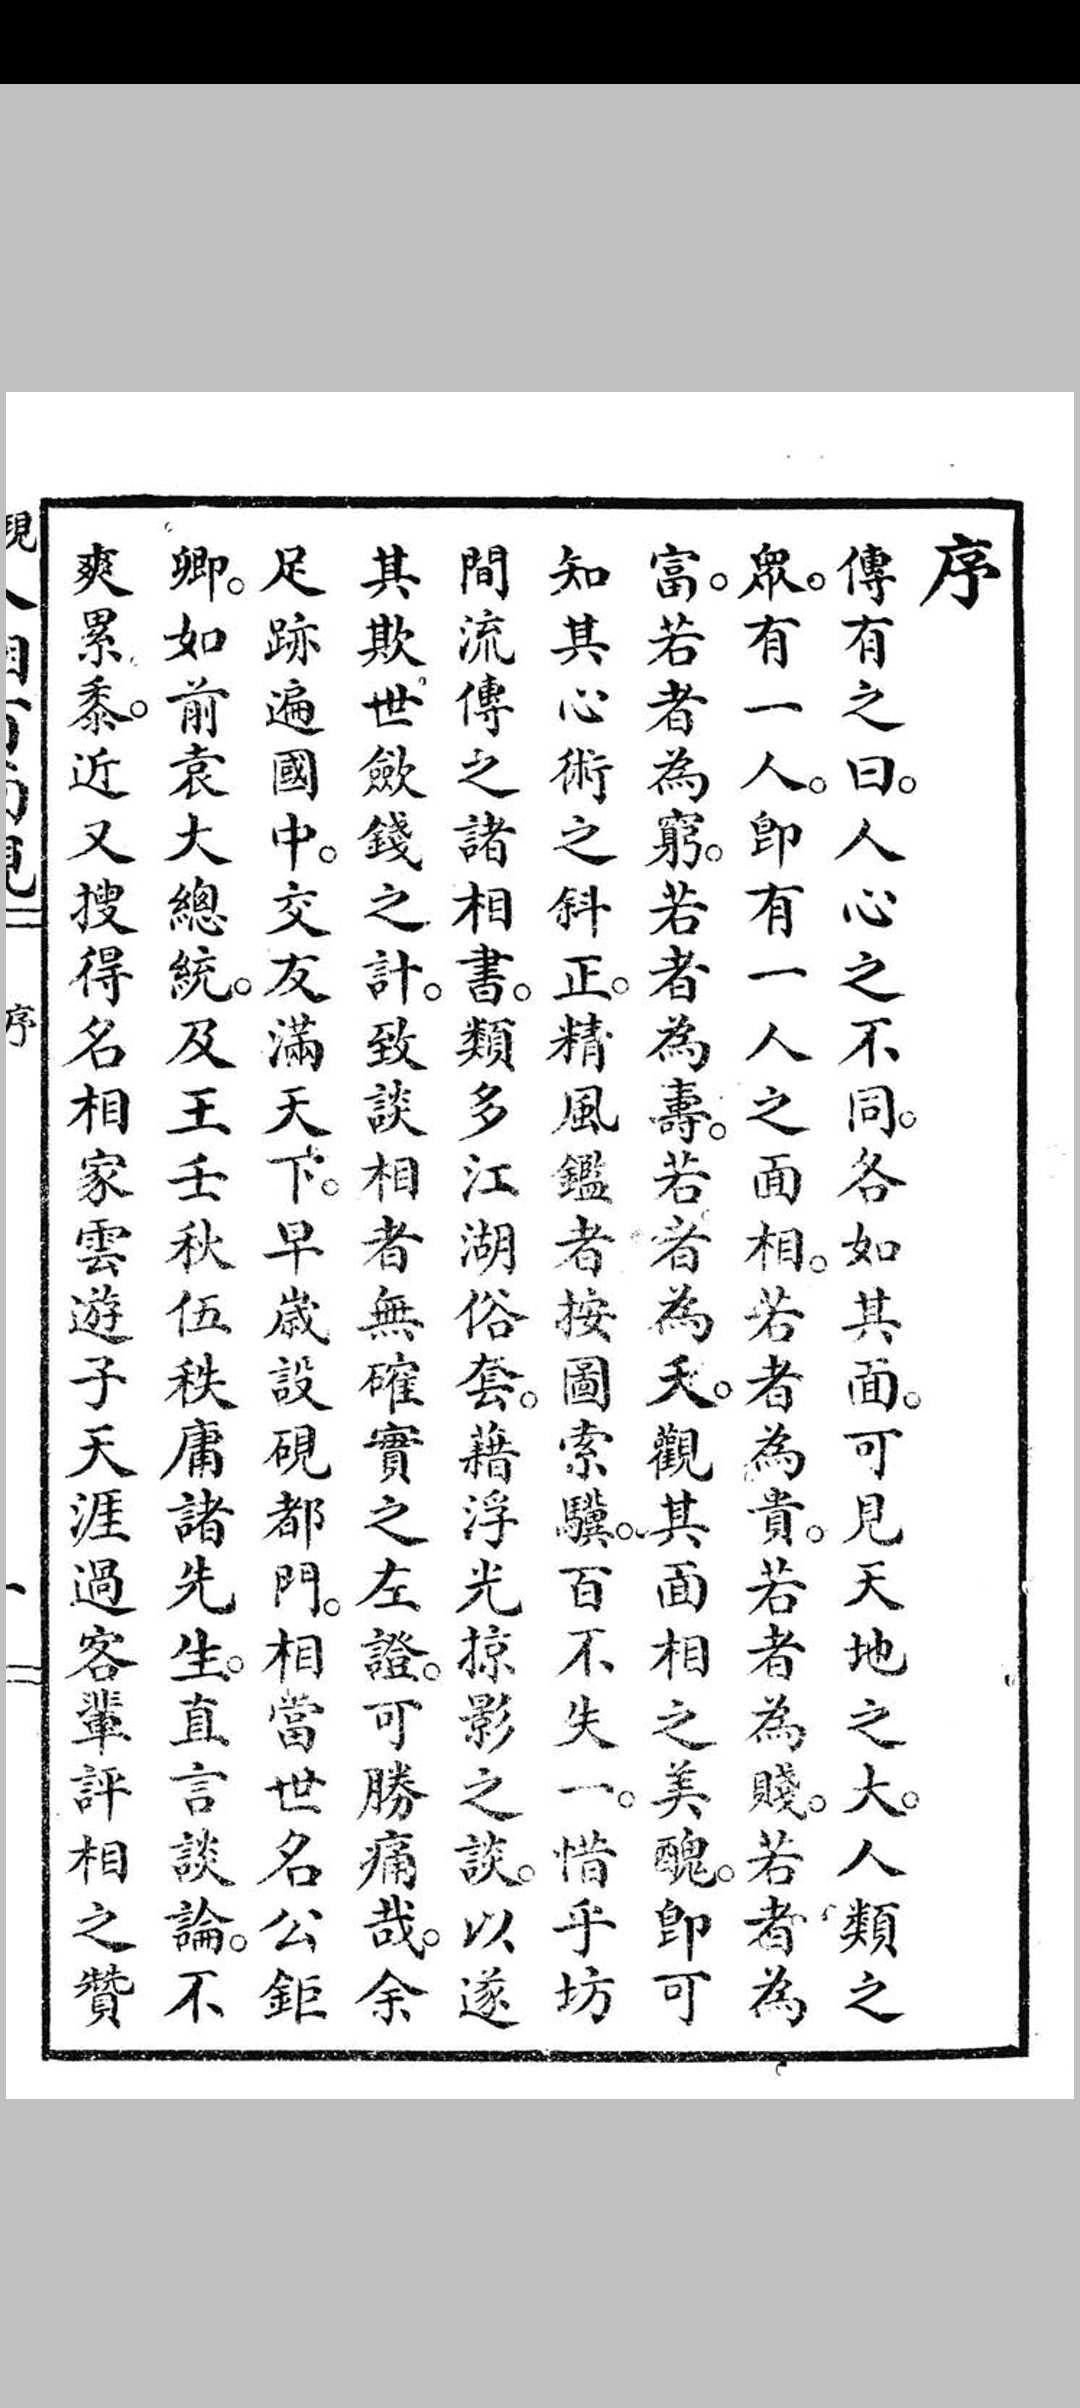 序
傳有之曰。人心之不同。各如其面。可見天地之大。人類之
眾。有一人。即有一人之面相。若者為貴。若者為賤。若者為
富。若者為窮。若者為壽。若者為夭。觀其面相之美醜。即可
知其心術之斜正。精風鑑者按圖索驥。百不失一。惜乎坊
間流傳之諸相書。類多江湖俗套。藉浮光掠影之談。以遂
其欺世斂錢之計。致談相者無確實之左證。可勝痛哉。余
足跡遍國中。交友滿天下。早歲設硯都門。相當世名公鉅
卿。如前袁大總統。及王壬秋伍秩庸諸先生。直言談論。不
爽累黍。近又搜得名相家雲遊子天涯過客輩評相之贊
序